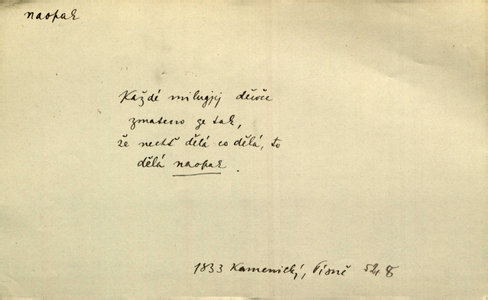 naopak
Každé milugjcý děwče
zmateno ge tak,
že nechť dělá co dělá, to
dělá naopak.
1833 Kamenický, Písně 548